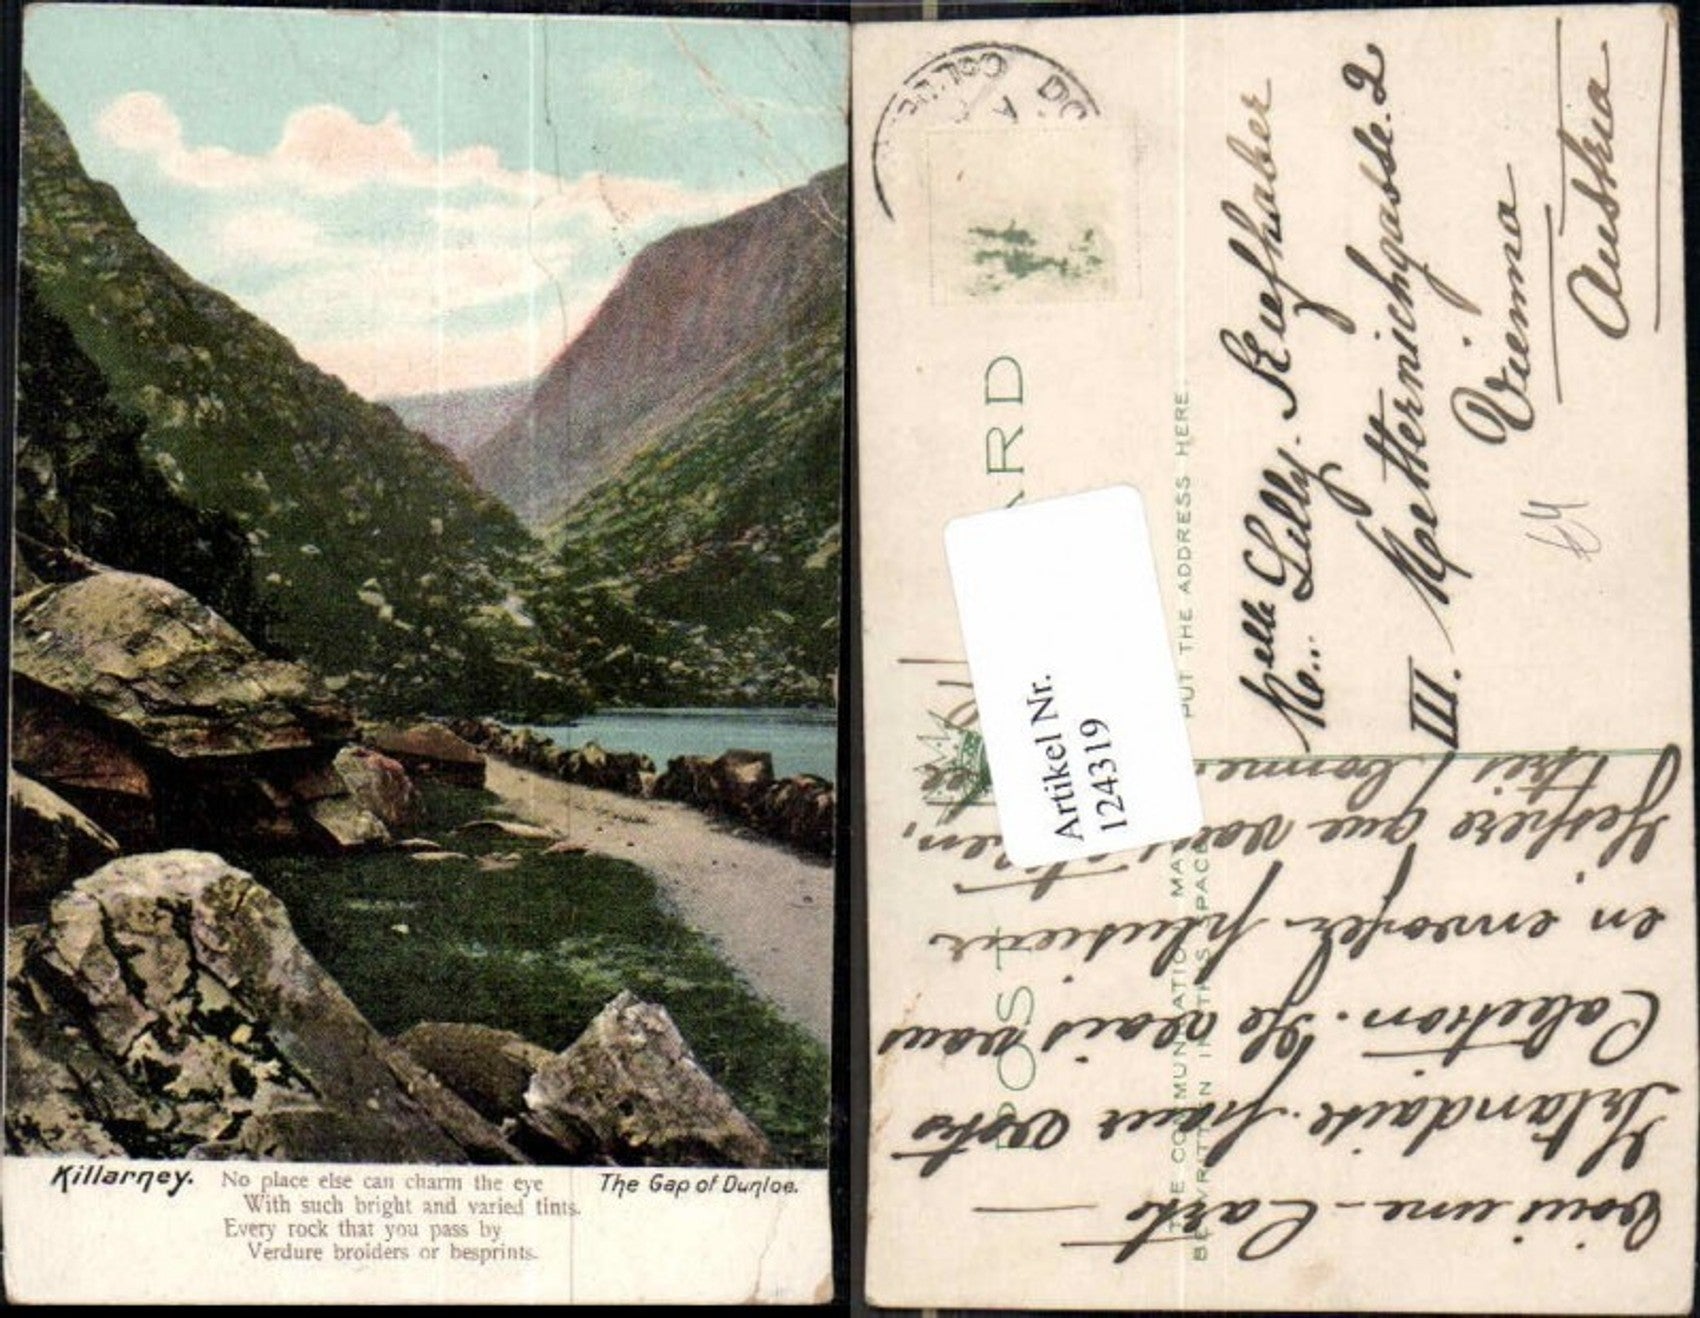 Killarney.
No place else can charm the eye
With such bright and varied tints.
Every rock that you pass by
Verdure broiders or besprints.
The Gap of Dunloe.
POST ARD
THE COMMUNICATION MA
BE WRITTEN IN THIS SPACE
PUT THE ADDRESS HERE.
Artikel Nr.
1244319
Melle Lilly. Kiefhaber
III. Metternichgasse. 2
Vienna
Austria
Voici une Carte
Irlandaise pour votre
Colection. Je vais vous
en envoyer plusieur
J'espere que vous
tres bonne